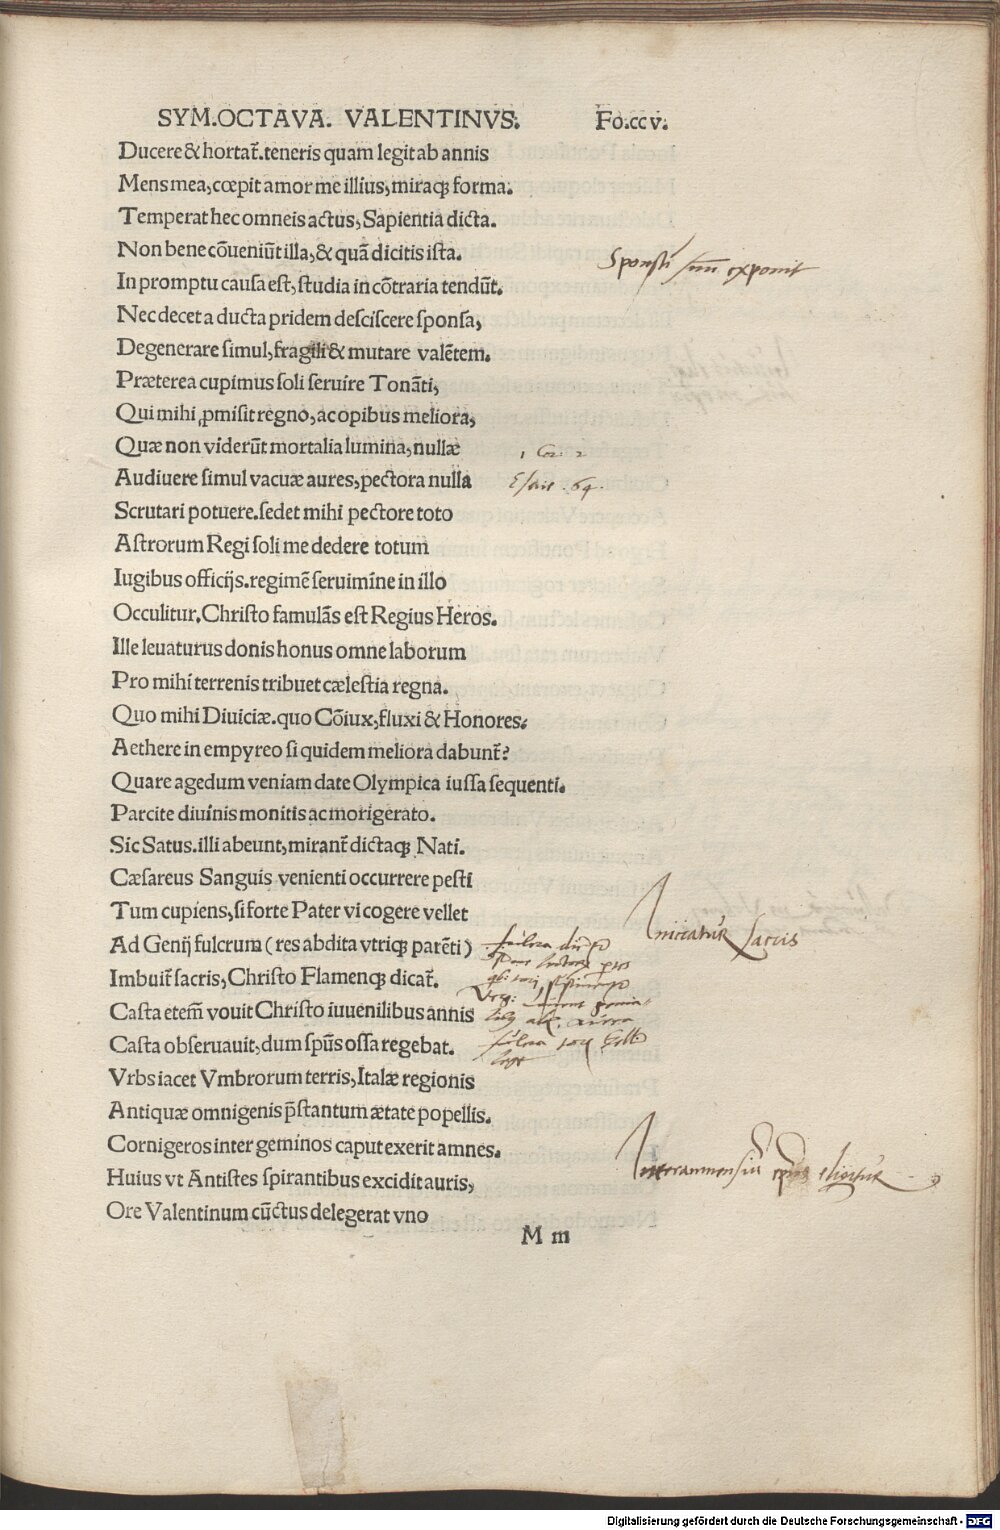 SYM.OCTAVA. VALENTINVS. Fo.ccv.
Ducere & hortat̃. teneris quam legit ab annis
Mens mea, cœpit amor me illius, miraq; forma.
Temperat hec omneis actus, Sapientia dicta.
Non bene cõueniũt illa, & quã dicitis ista.
Sponsā suā exponit
In promptu causa est, studia in cõtraria tendũt.
Nec decet a ducta pridem desciscere sponsa,
Degenerare simul, fragili & mutare valẽtem.
Præterea cupimus soli seruire Tonãti,
Qui mihi ꝓmisit regno, ac opibus meliora,
Quæ non viderũt mortalia lumina, nullæ
1 Cor. 2
Audiuere simul vacuæ aures, pectora nulla
Esaie .64.
Scrutari potuere. sedet mihi pectore toto
Astrorum Regi soli me dedere totum
Iugibus officijs. regimẽ seruimine in illo
Occulitur. Christo famulãs est Regius Heros.
Ille leuaturus donis honus omne laborum
Pro mihi terrenis tribuet cælestia regna.
Quo mihi Diuiciæ. quo Cõiux, fluxi & Honores.
Aethere in empyreo si quidem meliora dabunt̃?
Quare agedum veniam date Olympica iussa sequenti.
Parcite diuinis monitis ac morigerato.
Sic Satus. illi abeunt, mirant̃ dictaq; Nati.
Cæsareus Sanguis venienti occurrere pesti
Tum cupiens, si forte Pater vi cogere vellet
Initiatur sacris
Ad Genij fulcrum (res abdita vtriq; parẽti)
Imbuit̃ sacris, Christo Flamenq; dicat̃.
Casta etem̃ vouit Christo iuuenilibus annis
Casta obseruauit, dum sp̃us ossa regebat.
Vrbs iacet Vmbrorum terris, Italæ regionis
Antiquæ omnigenis p̃stantum ætate popellis.
Cornigeros inter geminos caput exerit amnes.
Interamnensiū ep̄us eligitur
Huius vt Antistes spirantibus excidit auris,
Ore Valentinum cũctus delegerat vno
M m
Digitalisierung gefördert durch die Deutsche Forschungsgemeinschaft - DFG